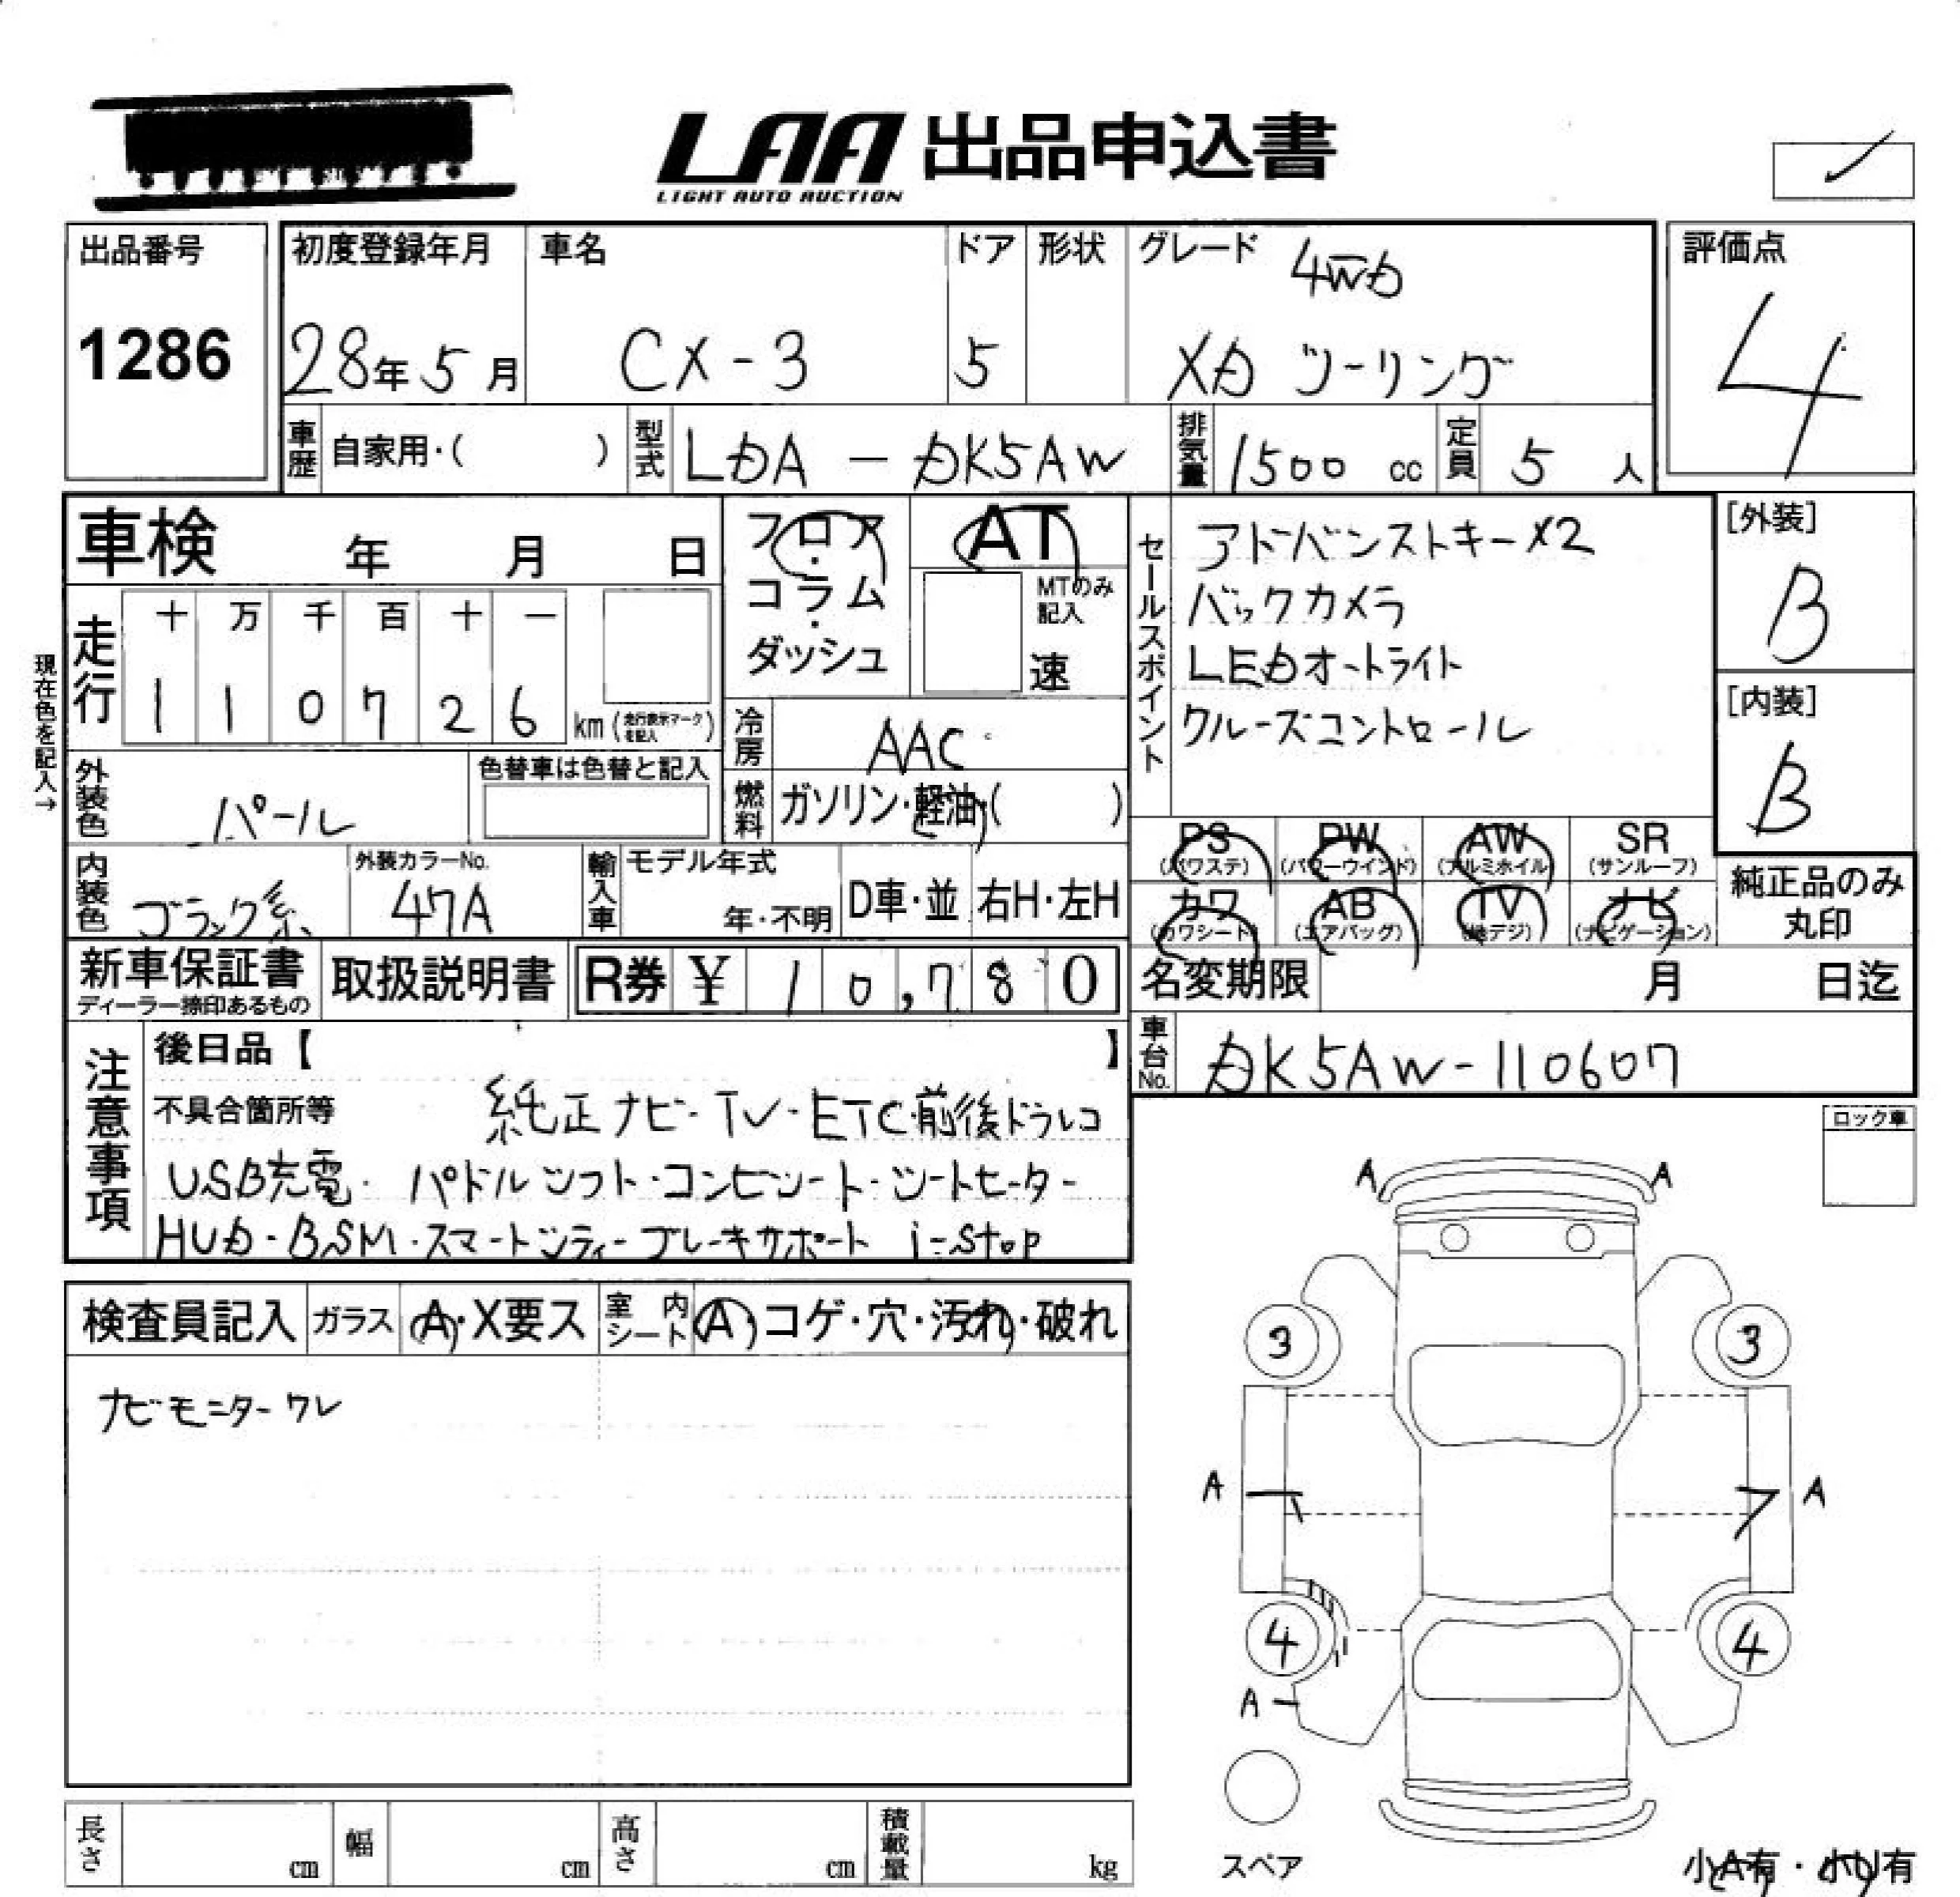 LAA 出品申込書
LIGHT AUTO AUCTION
出品番号
1286
初度登録年月
28年5月
車名
CX-3
ドア
5
形状
グレード
4WD
XD ツーリング
評価点
4
車歴 自家用・( )
型式 LDA-DK5AW
排気量 1500 cc
定員 5 人
車検 年 月 日
現在色を記入→
走行
十 万 千 百 十 一
1 1 0 7 2 6 km (走行表示マークを記入)
フロア・コラム・ダッシュ
AT
MTのみ記入
速
冷房 AAC
燃料 ガソリン・軽油・( )
外装色 パール
色替車は色替と記入
内装色 ブラック系
外装カラーNo.
47A
輸入車
モデル年式
年・不明
D車・並
右H・左H
セールスポイント
アドバンストキーX2
バックカメラ
LEDオートライト
クルーズコントロール
[外装]
B
[内装]
B
PS (パワステ)
PW (パワーウインド)
AW (アルミホイル)
SR (サンルーフ)
カワ (カワシート)
AB (エアバッグ)
TV (地デジ)
ナビ (ナビゲーション)
純正品のみ丸印
新車保証書
ディーラー捺印あるもの
取扱説明書
R券 ¥ 10,780
名変期限 月 日迄
車台No. DK5AW-110607
注意事項
後日品【 】
不具合箇所等 純正ナビ・TV・ETC・前後ドラレコ
USB充電・パドルシフト・コンビシート・シートヒーター
HUD・BSM・スマートシティーブレーキサポート i-stop
ロック車
検査員記入
ガラス A・X要ス
室内シート A・コゲ・穴・汚れ・破れ
ナビモニターワレ
A A
3 3
A A
4 4
A
スペア
小A有・小U有
長さ cm
幅 cm
高さ cm
積載量 kg